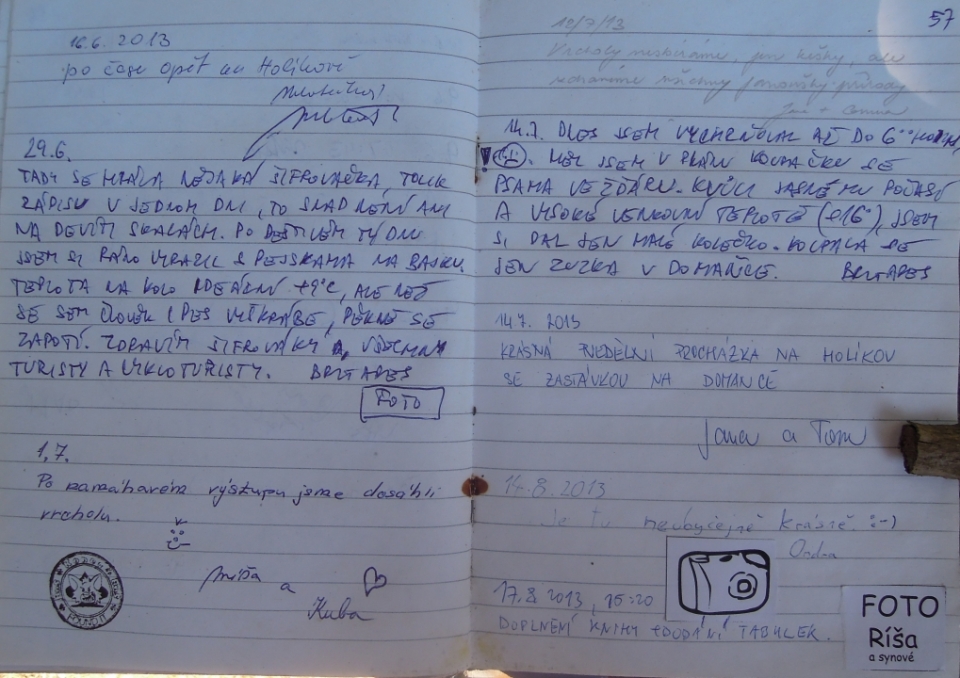 16.6. 2013
po čase opět na Holíkově
29.6.
TADY SE HRÁLA NĚJAKÁ ŠIFROVAČKA, TOLIK
ZÁPISŮ V JEDNOM DNI, TO SNAD NENÍ ANI
NA DEVÍTI SKALÁCH. PO DEŠTIVÉM TÝDNU
JSEM SI RÁNO VYRAZIL S PEJSKAMA NA
TEPLOTA NA KOLO IDEÁLNÍ +9°C, ALE NEŽ
SE SEM ČLOVĚK I PES VYŠKRÁBE, PĚKNĚ SE
ZAPOTÍ. ZDRAVÍM ŠIFROVÁKY A VŠECHNY
TURISTY A CYKLOTURISTY. BRUTAPES
FOTO
1.7.
Po namáhavém výstupu jsme dosáhli
vrcholu.
Míša a
Kuba
57
18/7/13
Vrcholy nesbíráme, jen kešky, ale
14.7. DNES JSEM VYCHRŇOVAL AŽ DO 6
. MĚL JSEM V PLÁNU KOUPAČKU SE
PSAMA VE ŽĎÁRU. KVŮLI JASNÉMU POČASÍ
A VYSOKÉ VENKOVNÍ TEPLOTĚ (+16°), JSEM
SI DAL JEN MALÉ KOLEČKO. KOUPALA SE
JEN ZUZKA V DOMANČE. BRUTAPES
14.7. 2013
KRÁSNÁ NEDĚLNÍ PROCHÁZKA NA HOLÍKOV
SE ZASTÁVKOU NA DOMANCE
Jana a Tom
14.8.2013
Je tu neobyčejně krásně. :-)
Ondra
17.8.2013, 15:20
DOPLNĚNÍ KNIHY + DODÁNÍ TABULEK.
FOTO
Ríša
a synové